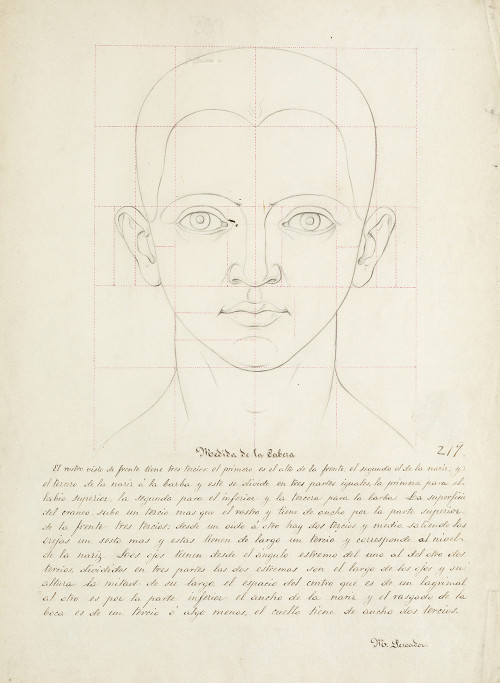 Medida de la Cabeza
217
El rostro visto de frente tiene tres tercios el primero es el alto de la frente, el segundo el de la nariz, y
el tercero de la nariz á la barba y este se divide en tres partes iguales, la primera para el
labio superior, la segunda para el inferior y la tercera para la barba. La superficie
del craneo sube un tercio mas que el rostro y tiene de ancho por la parte superior
de la frente tres tercios: desde un oido á otro hay dos tercios y medio saliendo las
orejas un sesto mas y estas tienen de largo un tercio y corresponde al nivel
de la nariz. Los ojos tienen desde el ángulo estremo del uno al del otro dos
tercios, divididos en tres partes las dos estremas son el largo de los ojos y su
altura la mitad de su largo el espacio del centro que es de un lagrimal
al otro es por la parte inferior el ancho de la nariz y el rasgado de la
boca es de un tercio ó algo menos, el cuello tiene de ancho dos tercios.
M. Pescador